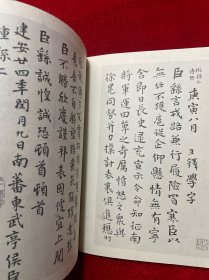 庚寅八月
臣繇言戎路兼行履險冒寒臣以
無任不獲扈從企佇懸情無有寧
舍即日長史逮充宣示令命知征南
將軍運田單之奇厲憤怒之眾與
徐晃同勢并力撲討表裏俱進應
臣不勝欣慶謹拜表因便宜上聞
臣繇誠惶誠恐頓首頓首
建安廿四年閏月九日南蕃東武亭侯臣